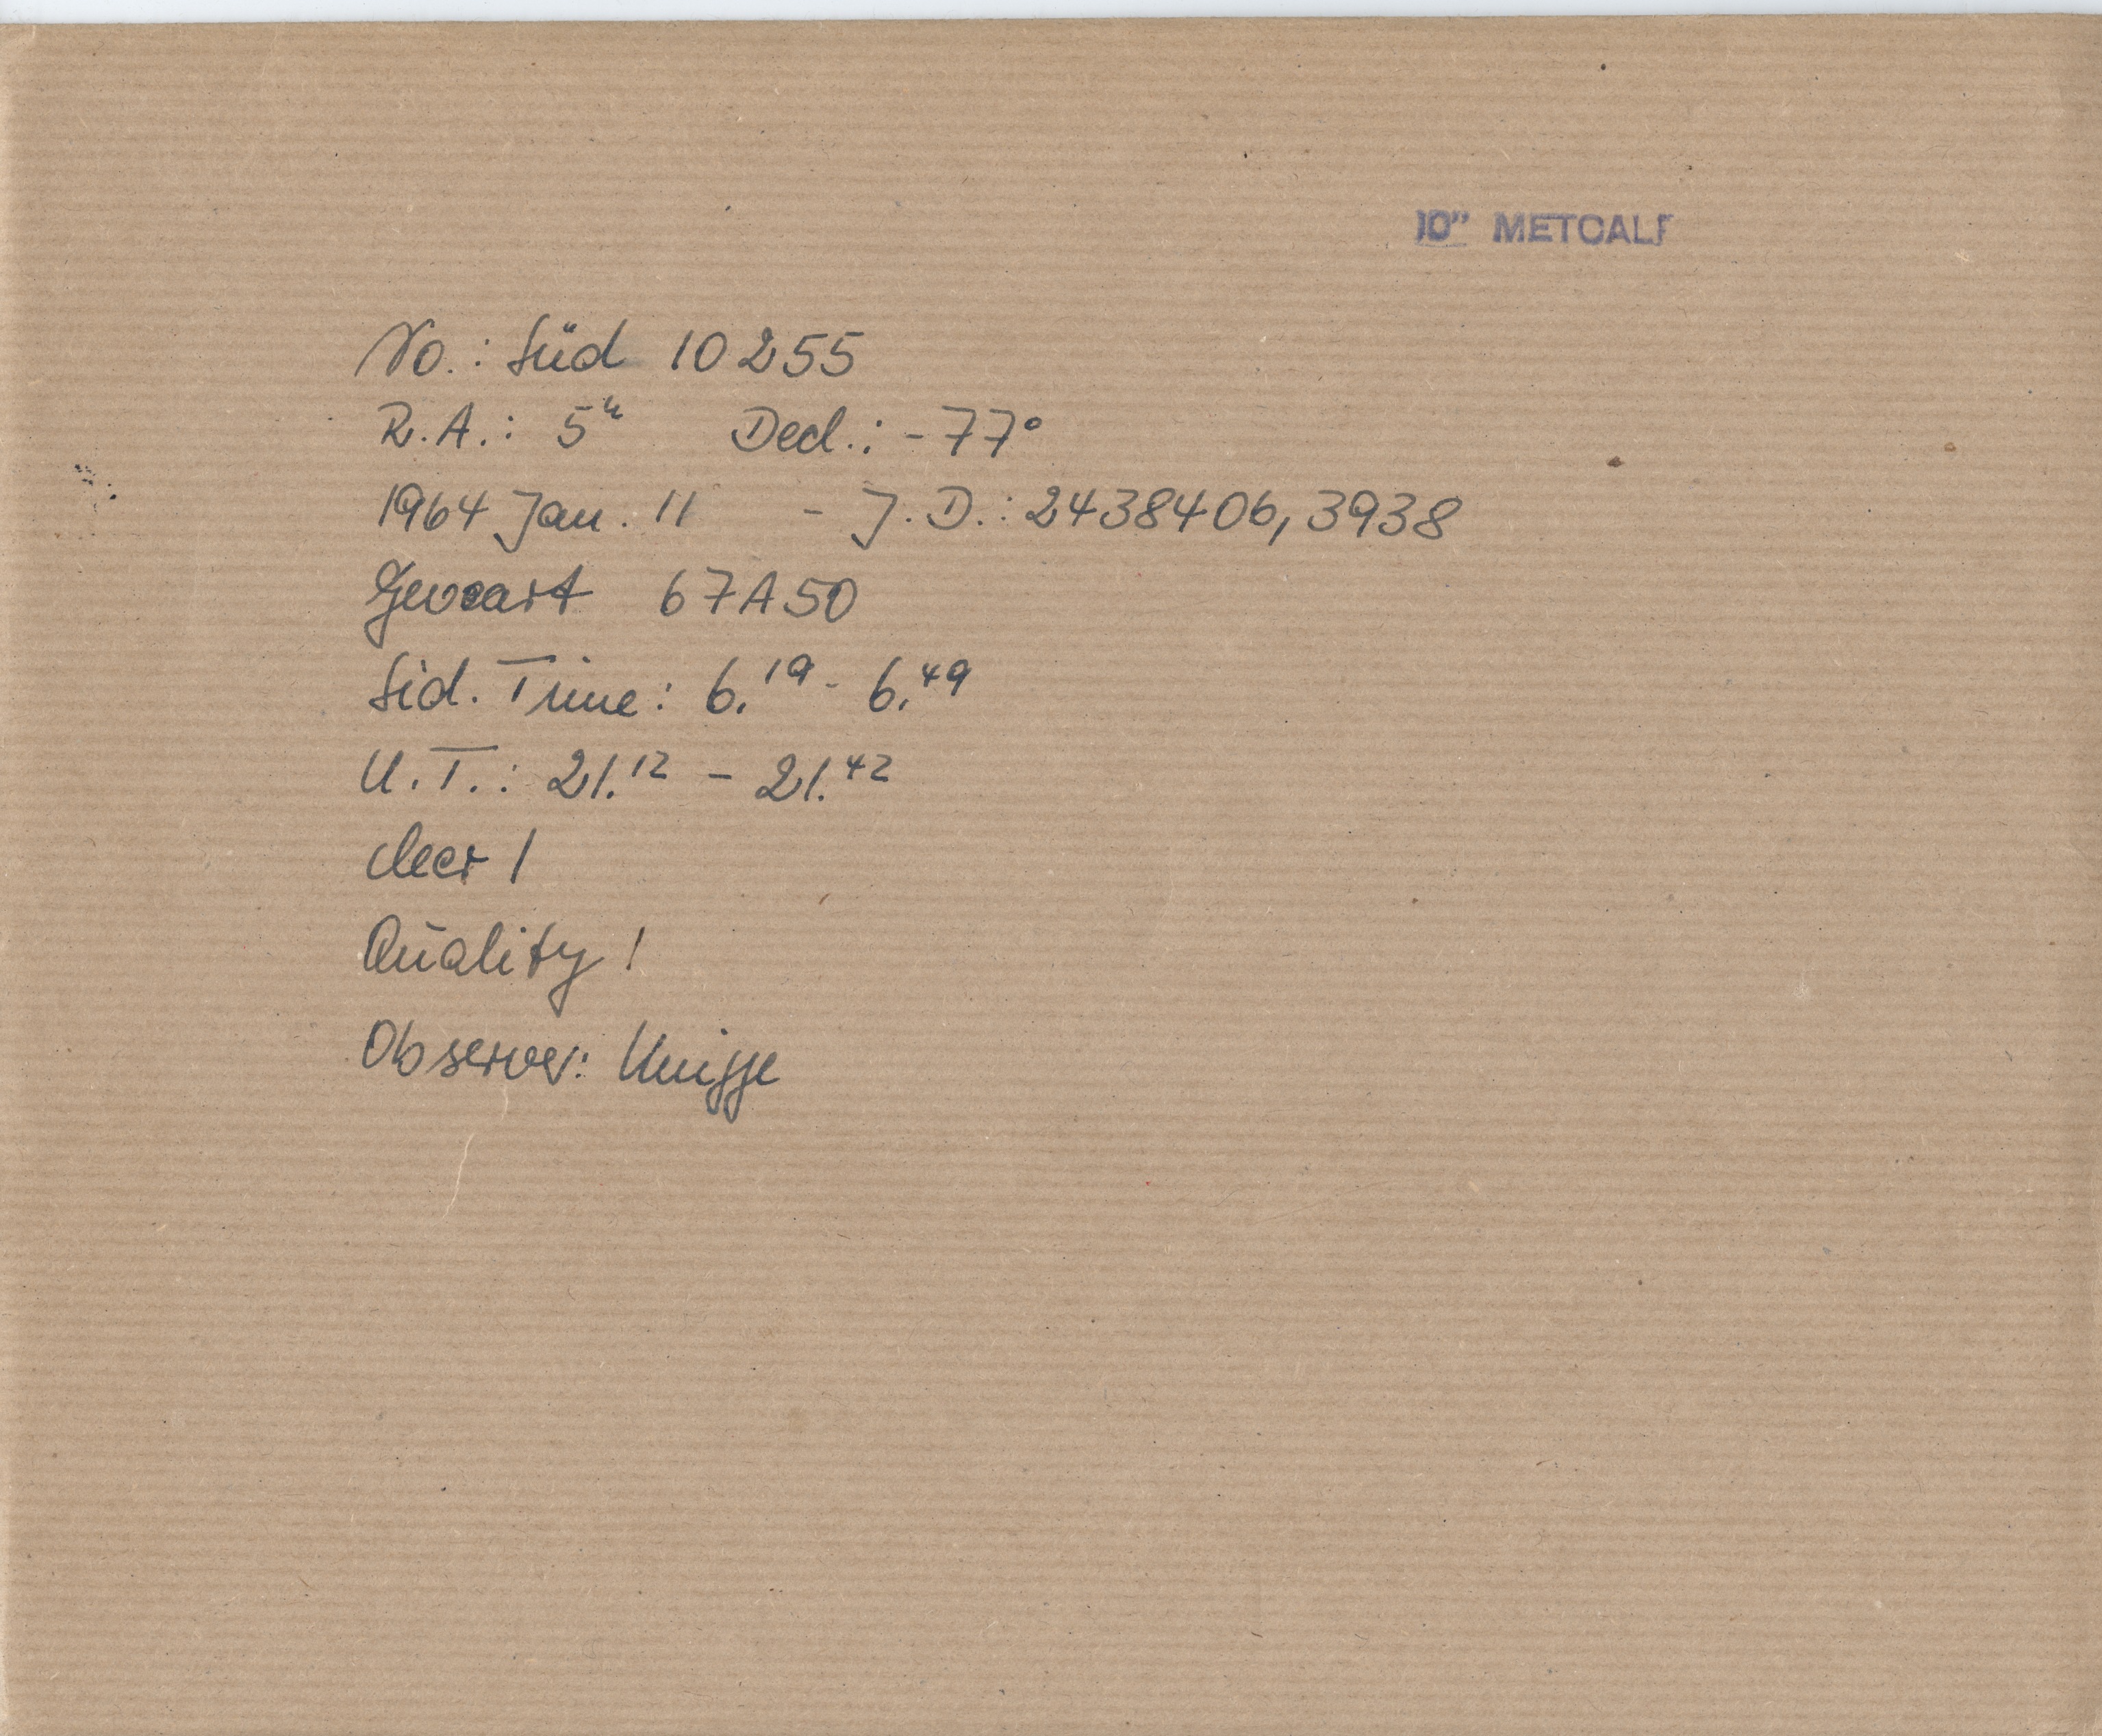 10" METCALF
No.: Süd 10255
R.A.: 5ʰ Decl.: -77°
1964 Jan. 11 - J.D.: 2438406,3938
Gevaert 67A50
Sid. Time: 6.¹⁹ - 6.⁴⁹
U.T.: 21.¹² - 21.⁴²
cleer 1
Quality 1
Observer: Knigge